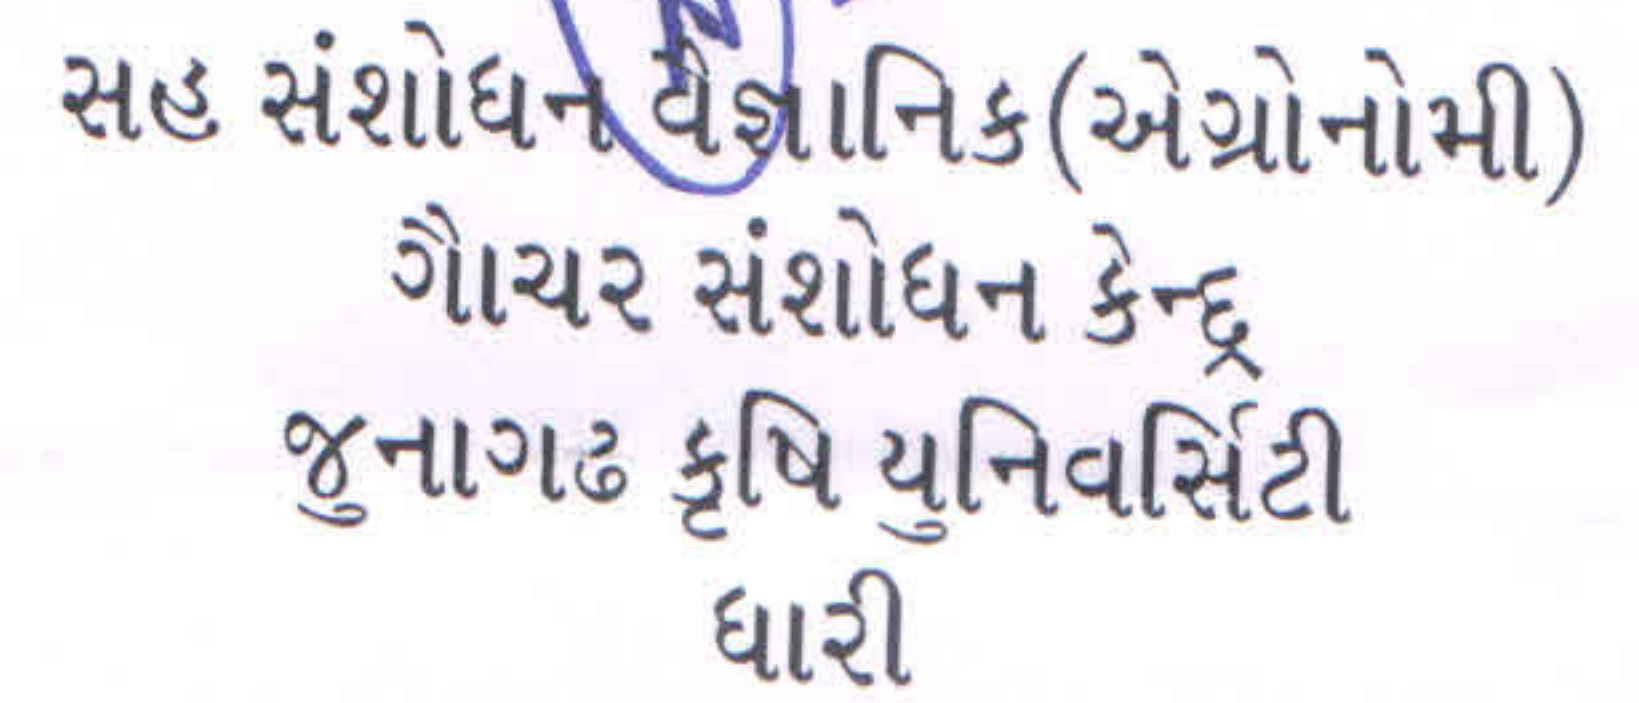 સહ સંશોધન વૈજ્ઞાનિક(એગ્રોનોમી)
ગૌચર સંશોધન કેન્દ્ર
જુનાગઢ કૃષિ યુનિવર્સિટી
ધારી